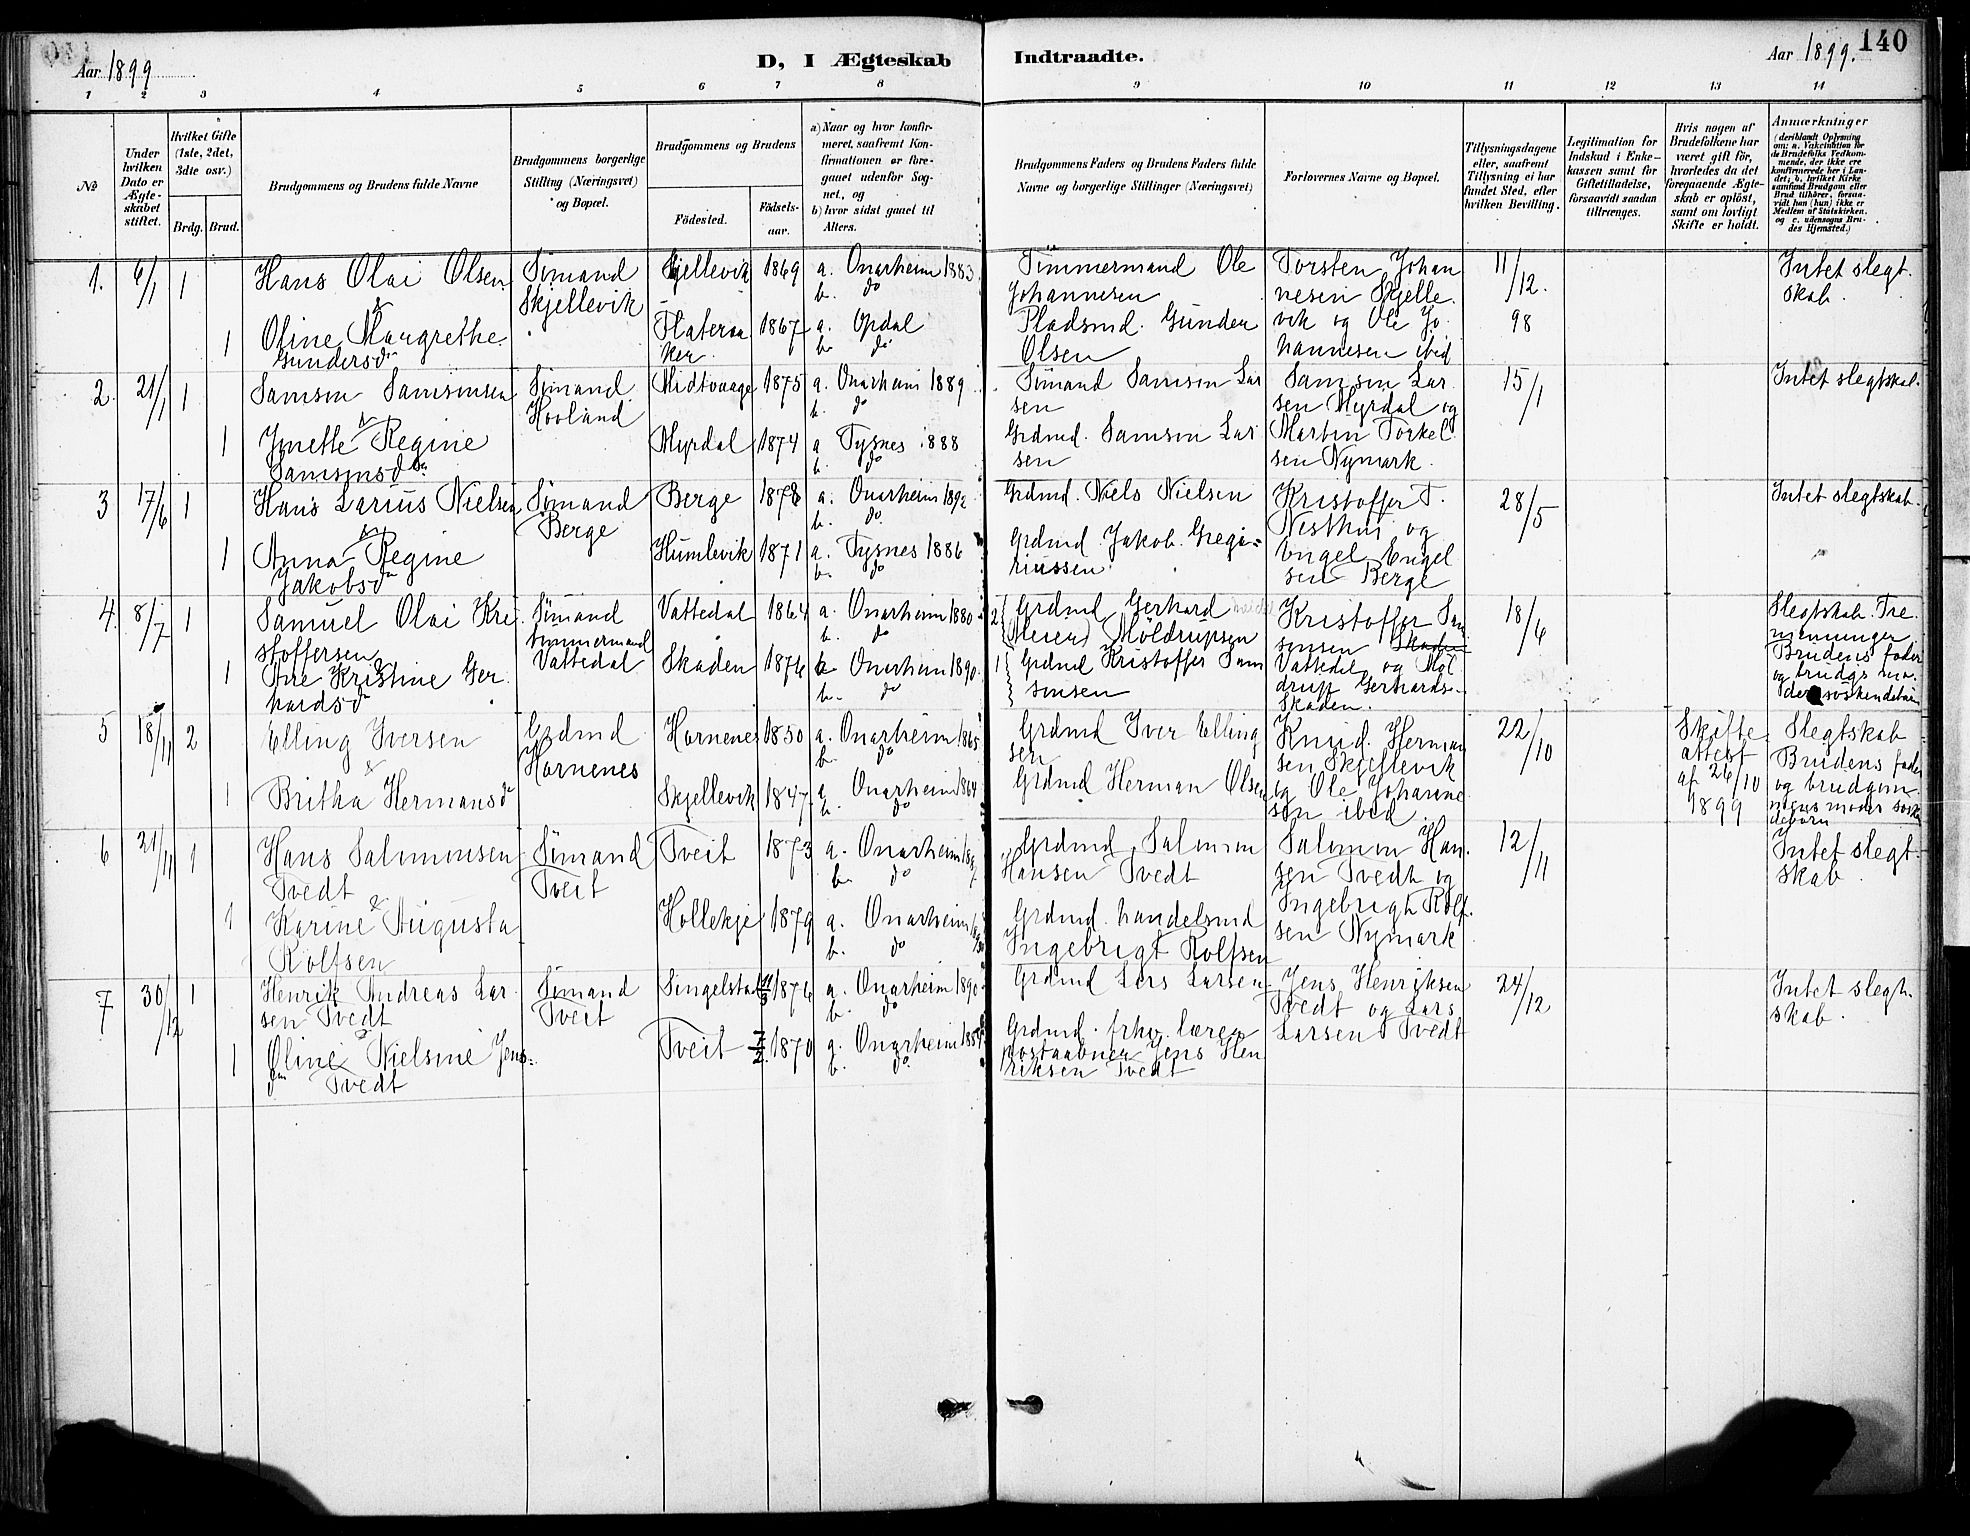 Aar 1899
D, I Ægteskab
Indtraadte.
Aar 1899.
140
1 2 3 4 5 6 7 8 9 10 11 12 13 14
No
Under hvilken Dato er Ægteskabet stiftet.
Hvilket Gifte (1ste, 2det, 3dte osv.)
Brdg. Brud.
Brudgommens og Brudens fulde Navne
Brudgommens borgerlige Stilling (Næringsvei) og Bopæl.
Brudgommens og Brudens
Födested. Födselsaar.
a) Naar og hvor konfirmeret, saafremt Konfirmationen er foregaaet udenfor Sognet, og
b) hvor sidst gaaet til Alters.
Brudgommens Faders og Brudens Faders fulde Navne og borgerlige Stillinger (Næringsvei)
Forlovernes Navne og Bopæl.
Tillysningsdagene eller, saafremt Tillysning ei har fundet Sted, efter hvilken Bevilling.
Legitimation for Indskud i Enkekassen samt for Giftetilladelse, forsaavidt saadan tiltrænges.
Hvis nogen af Brudefolkene har været gift för, hvorledes da det foregaaende Ægteskab er oplöst, samt om lovligt Skifte er holdt.
Anmærkninger (deriblandt Oplysning om: a. Vakcination for de Brudefolks Vedkommende, der ikke ere konfirmerede her i Landet; b. hvilket Kirkesamfund Brudgom eller Brud tilhörer, forsaavidt han (hun) ikke er Medlem af Statskirken, og c. udensogns Brudes Hjemsted.)
1. 6/1 1 Hans Olai Olsen Sømand Skjellevik Skjellevik 1869 a. Onarheim 1883 b. do Timmermand Ole Johannesen Torsten Johannesen Skjellevik og Ole Johannesen ibid 11/12. 98 Intet slegtskab.
&
1 Oline Margrethe Gundersdr 1867 a. Opdal b. do Pladsmd. Gunder Olsen
2. 21/1 1 Samson Samsonsen Sømand Hovland Midtvaage 1875 a. Onarheim 1889 b. do Sømand Samson Larsen Samson Larsen Myrdal og Martin Torkelsen Nymark. 15/1 Intet slegtskab.
&
1 Regine Samsonsdr Myrdal 1874 a Tysnes 1888 b. do Grdmd. Samson Larsen
3 17/6 1 Hans Larius Nielsen Sømand Berge Berge 1878 a. Onarheim 1892 b. do Grdmd. Niels Nielsen Kristoffer T. Nesthus og Engel Engelsen Berge 28/5 Intet slegtskab.
&
1 Anna Regine Jakobsdr Humlevik 1871 a. Tysnes 1886 b. do Grdmd. Jakob Gregoriussen
4. 8/7 1 Samuel Olai Kristoffersen Sømand tømmermand Vattedal Vattedal 1864 a. Onarheim 1880 b. do 2 Grdmd Gerhard (Meier) Møldrupsen Kristoffer Samsonsen Skaden Vattedal og Møldrup Gerhardsen Skaden. 18/6 Slegtskab. Tremenninger Brudens fader og brudgs moder søskendebørn
&
1 Ane Kristine Gerhardsdr Skaden 1876 a. Onarheim 1890 b. do 1 Grdmd Kristoffer Samsonsen
5 18/11 2 Elling Iversen Grdmd Hornenes Hornenes 1850 a. Onarheim 1865 b. do Grdmd Iver Ellingsen Knud Hermansen Skjellevik og Ole Johannesen ibid 22/10 Skifteattest af 26/10 1899 Slegtskab Brudens fader og brudgommens moder søskendebørn
&
1 Britha Hermansdr Skjellevik 1847 a Onarheim 1864 b. do Grdmd Herman Olsen
6 21/11 1 Hans Salomonsen Tvedt Sømand Tveit Tveit 1873 a. Onarheim b. do Grdmd Salomon Hansen Tvedt Salomon Hansen Tvedt og Ingebrigt Rolfsen Nymark 12/11 Intet slegtskab
&
1 Karine Augusta Rolfsen Hollekje 1879 a. Onarheim b. do Grdmd. handelsmd Ingebrigt Rolfsen
7 30/12 1 Henrik Andreas Larsen Tvedt Sømand Tveit Singelstad 1876 a. Onarheim 1890 b. do Grdmd Lars Larsen Jens Henriksen Tvedt og Lars Larsen Tvedt 24/12 Intet slegtskab.
&
1 Oline Nielsine Jensdr Tvedt Tveit 7/2 1870 a. Onarheim b. do Grdmd. frhv. lærer postaabner Jens Henriksen Tvedt